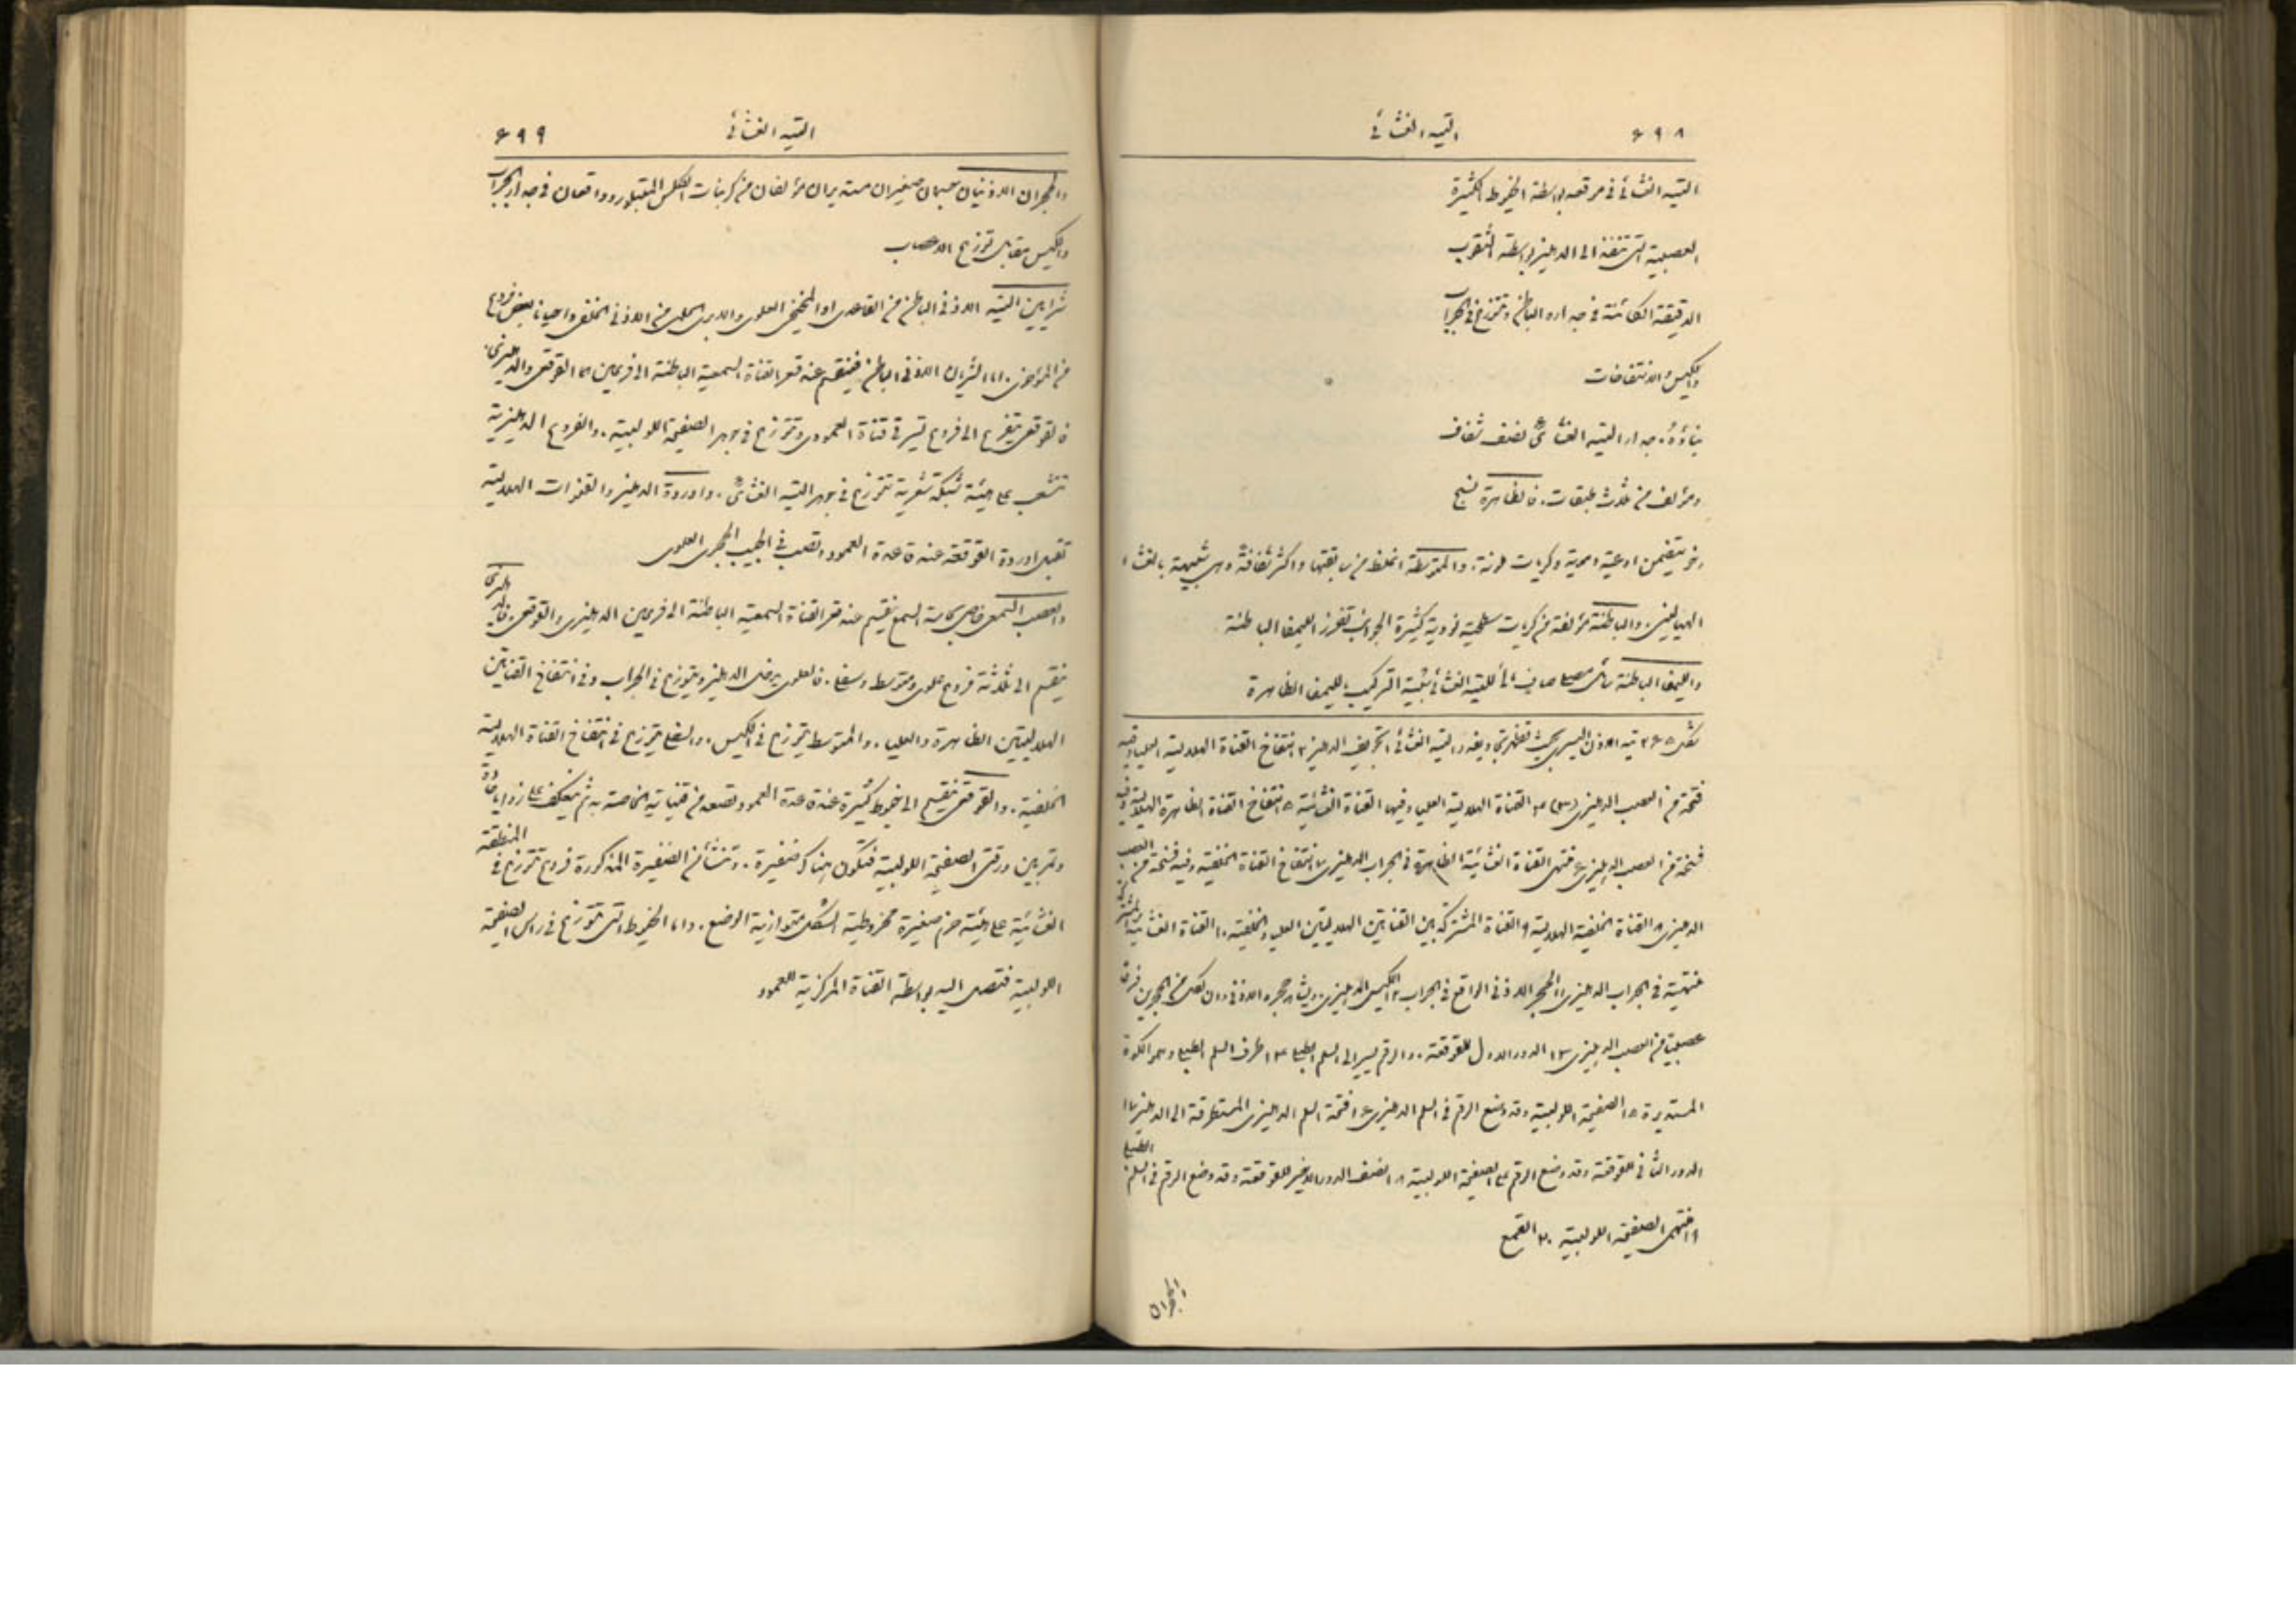 ٦٩٨
التيه الغشائي
التيه الغشائي في موقعه بواسطة الخيوط الكثيرة
العصبية التي تنفذ الى الدهليز بواسطة الثقوب
الدقيقة الكائنة في جداره الباطن وتتوزع في الجراب
والكيس والانتفاخات
بناؤه. جدار التيه الغشائي نصف شفاف
ومؤلف من ثلاث طبقات. فالظاهرة نسيج
رخو يتضمن اوعية دموية وكريات ملونة. والمتوسطة اغلظ من سابقتها واكثر ثفافة وهي شبيهة بالغشاء
الهيالينى. والباطنة مؤلفة من كريات سطحية نووية كثيرة الجوانب تفرز الليمفا الباطنة
والليمفا الباطنة سائل مصلي صاف مالئ للتيه الغشائي شبيه التركيب بالليمفا الظاهرة
شكل ٣٦٥ تيه الاذن اليسرى بحيث تظهر تجاويفه والتيه الغشائي ١ تجويف الدهليز ٢ انتفاخ القناة الهلالية العليا وفيه
فتحة من العصب الدهليزي (٣) ٤ القناة الهلالية العليا وفيها القناة الغشائية ٥ انتفاخ القناة الظاهرة الهلالية وفيه
فتحة من العصب الدهليزي ٦ منتهى القناة الغشائية الظاهرة في الجراب الدهليزي ٧ انتفاخ القناة الخلفية وفيه فتحة من العصب
الدهليزي ٨ القناة الخلفية الهلالية ٩ القناة المشتركة بين القناتين الهلاليتين العليا والخلفية ١٠ القناة الغشائية المشتركة
منتهية في الجراب الدهليزي ١١ الحجر الاذني الواقع في الجراب ١٢ الكيس الدهليزي ويشاهد حجره الاذني وان لكل من الحجرين فرقا
عصبيا من العصب الدهليزي ١٣ الدور الاول للقوقعة. والرقم يشير الى السلم الطبلي ١٤ طرف السلم الطبلي وهو الكوة
المستديرة ١٥ الصفيحة اللولبية وقد وضع الرقم في السلم الدهليزي ١٦ فتحة السلم الدهليزي المستطرقة الى الدهليز ١٧
الدور الثاني للقوقعة وقد وضع الرقم على الصفيحة اللولبية ١٨ النصف الدور الاخير للقوقعة وقد وضع الرقم في السلم الطبلي
١٩ منتهى الصفيحة اللولبية ٢٠ القمع
الحجران
٦٩٩
التيه الغشائي
والحجران الاذنيان جسمان صغيران مستديران مؤلفان من كربنات الكلس المتبلور وواقعان في جدار الجراب
والكيس مقابل توزيع الاعصاب
شرايين التيه الاذني الباطن من القاعدي او المخيخي العلوي والابري الحلمي من الاذني الخلفي واحيانا بعض فروع
من المؤخري. اما الشريان الاذني الباطن فينقسم عند قعر القناة السمعية الباطنة الى فرعين هما القوقعي والدهليزي.
فالقوقعي يتفرع الى فروع تسير في قناة العمود وتتوزع في جوهر الصفيحة اللولبية. والفروع الدهليزية
تتشعب على هيئة شبكة شعرية تتوزع في جوهر التيه الغشائي. واوردة الدهليز والقنوات الهلالية
تقبل اوردة القوقعة عند قاعدة العمود وتصب في الجيب الحجري العلوي
والعصب السمعي خاص بحاسة السمع ينقسم عند قعر القناة السمعية الباطنة الى فرعين الدهليزي والقوقعي. فالدهليزي
ينقسم الى ثلاثة فروع علوي ومتوسط وسفلي. فالعلوي يدخل الدهليز ويتوزع في الجراب وفي انتفاخ القناتين
الهلاليتين الظاهرة والعليا. والمتوسط يتوزع في الكيس. والسفلي يتوزع في انتفاخ القناة الهلالية
الخلفية. والقوقعي ينقسم الى خيوط كثيرة عند قاعدة العمود وتصعد من قنياته الخاصة به ثم تنعكف على زوايا حادة
وتمر بين ورقتي الصفيحة اللولبية فتكون هناك ضفيرة. وتنشأ من الضفيرة المذكورة فروع تتوزع في المنطقة
الغشائية على هيئة حزم صغيرة مخروطية الشكل متوازية الوضع. واما الخيوط التي تتوزع في راس الصفيحة
اللولبية فتصل اليه بواسطة القناة المركزية للعمود